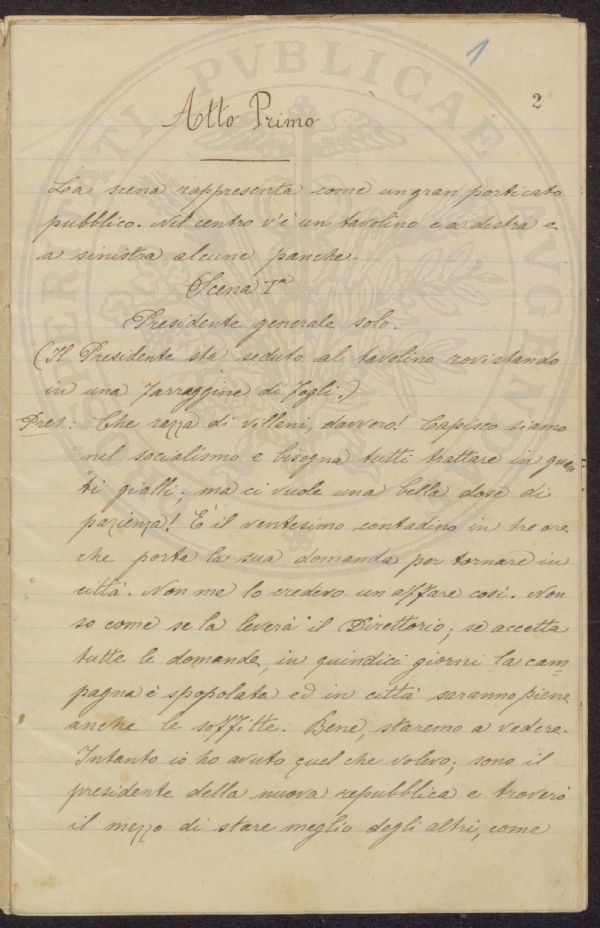 1
2
Atto Primo
La scena rappresenta come un gran porticato
pubblico. Nel centro v'è un tavolino e a destra e
a sinistra alcune panche.
Scena Iª
Presidente generale solo.
(Il Presidente sta seduto al tavolino rovistando
in una farraggine di fogli.)
Pres: Che razza di villani, davvero! Capisco siamo
nel socialismo e bisogna tutti trattare in guan
ti gialli; ma ci vuole una bella dose di
pazienza! È il ventesimo contadino in tre ore
che porta la sua domanda per tornare in
città. Non me lo credevo un affare così. Non
so come se la leverà il Direttorio; se accetta
tutte le domande, in quindici giorni la cam=
pagna è spopolata ed in città saranno piene
anche le soffitte. Bene, staremo a vedere.
Intanto io ho avuto quel che volevo; sono il
presidente della nuova repubblica e troverò
il mezzo di stare meglio degli altri, come